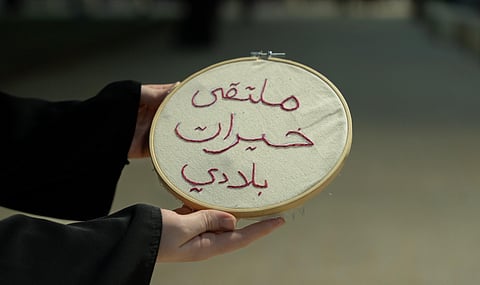 ملتقى
خيرات
بلادي